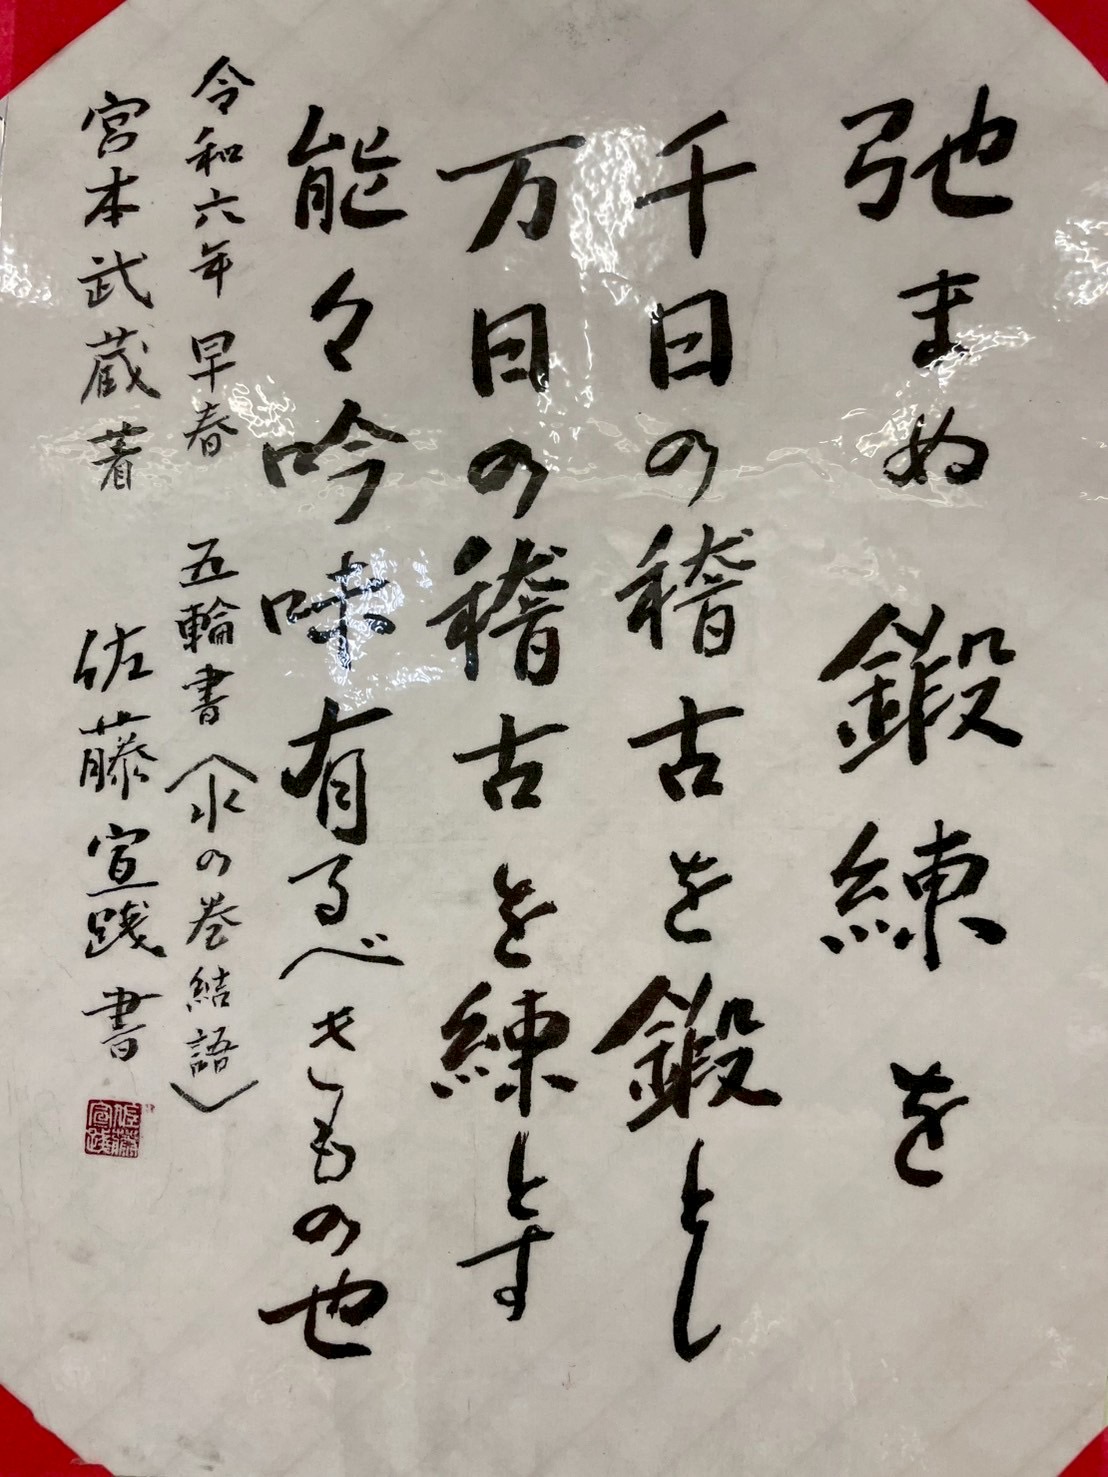 弛まぬ 鍛練を
千日の稽古を鍛とし
万日の稽古を練とす
能々吟味有るべきもの也
令和六年 早春 五輪書（水の巻結語）
宮本武蔵著 佐藤宣践書
佐藤宣践